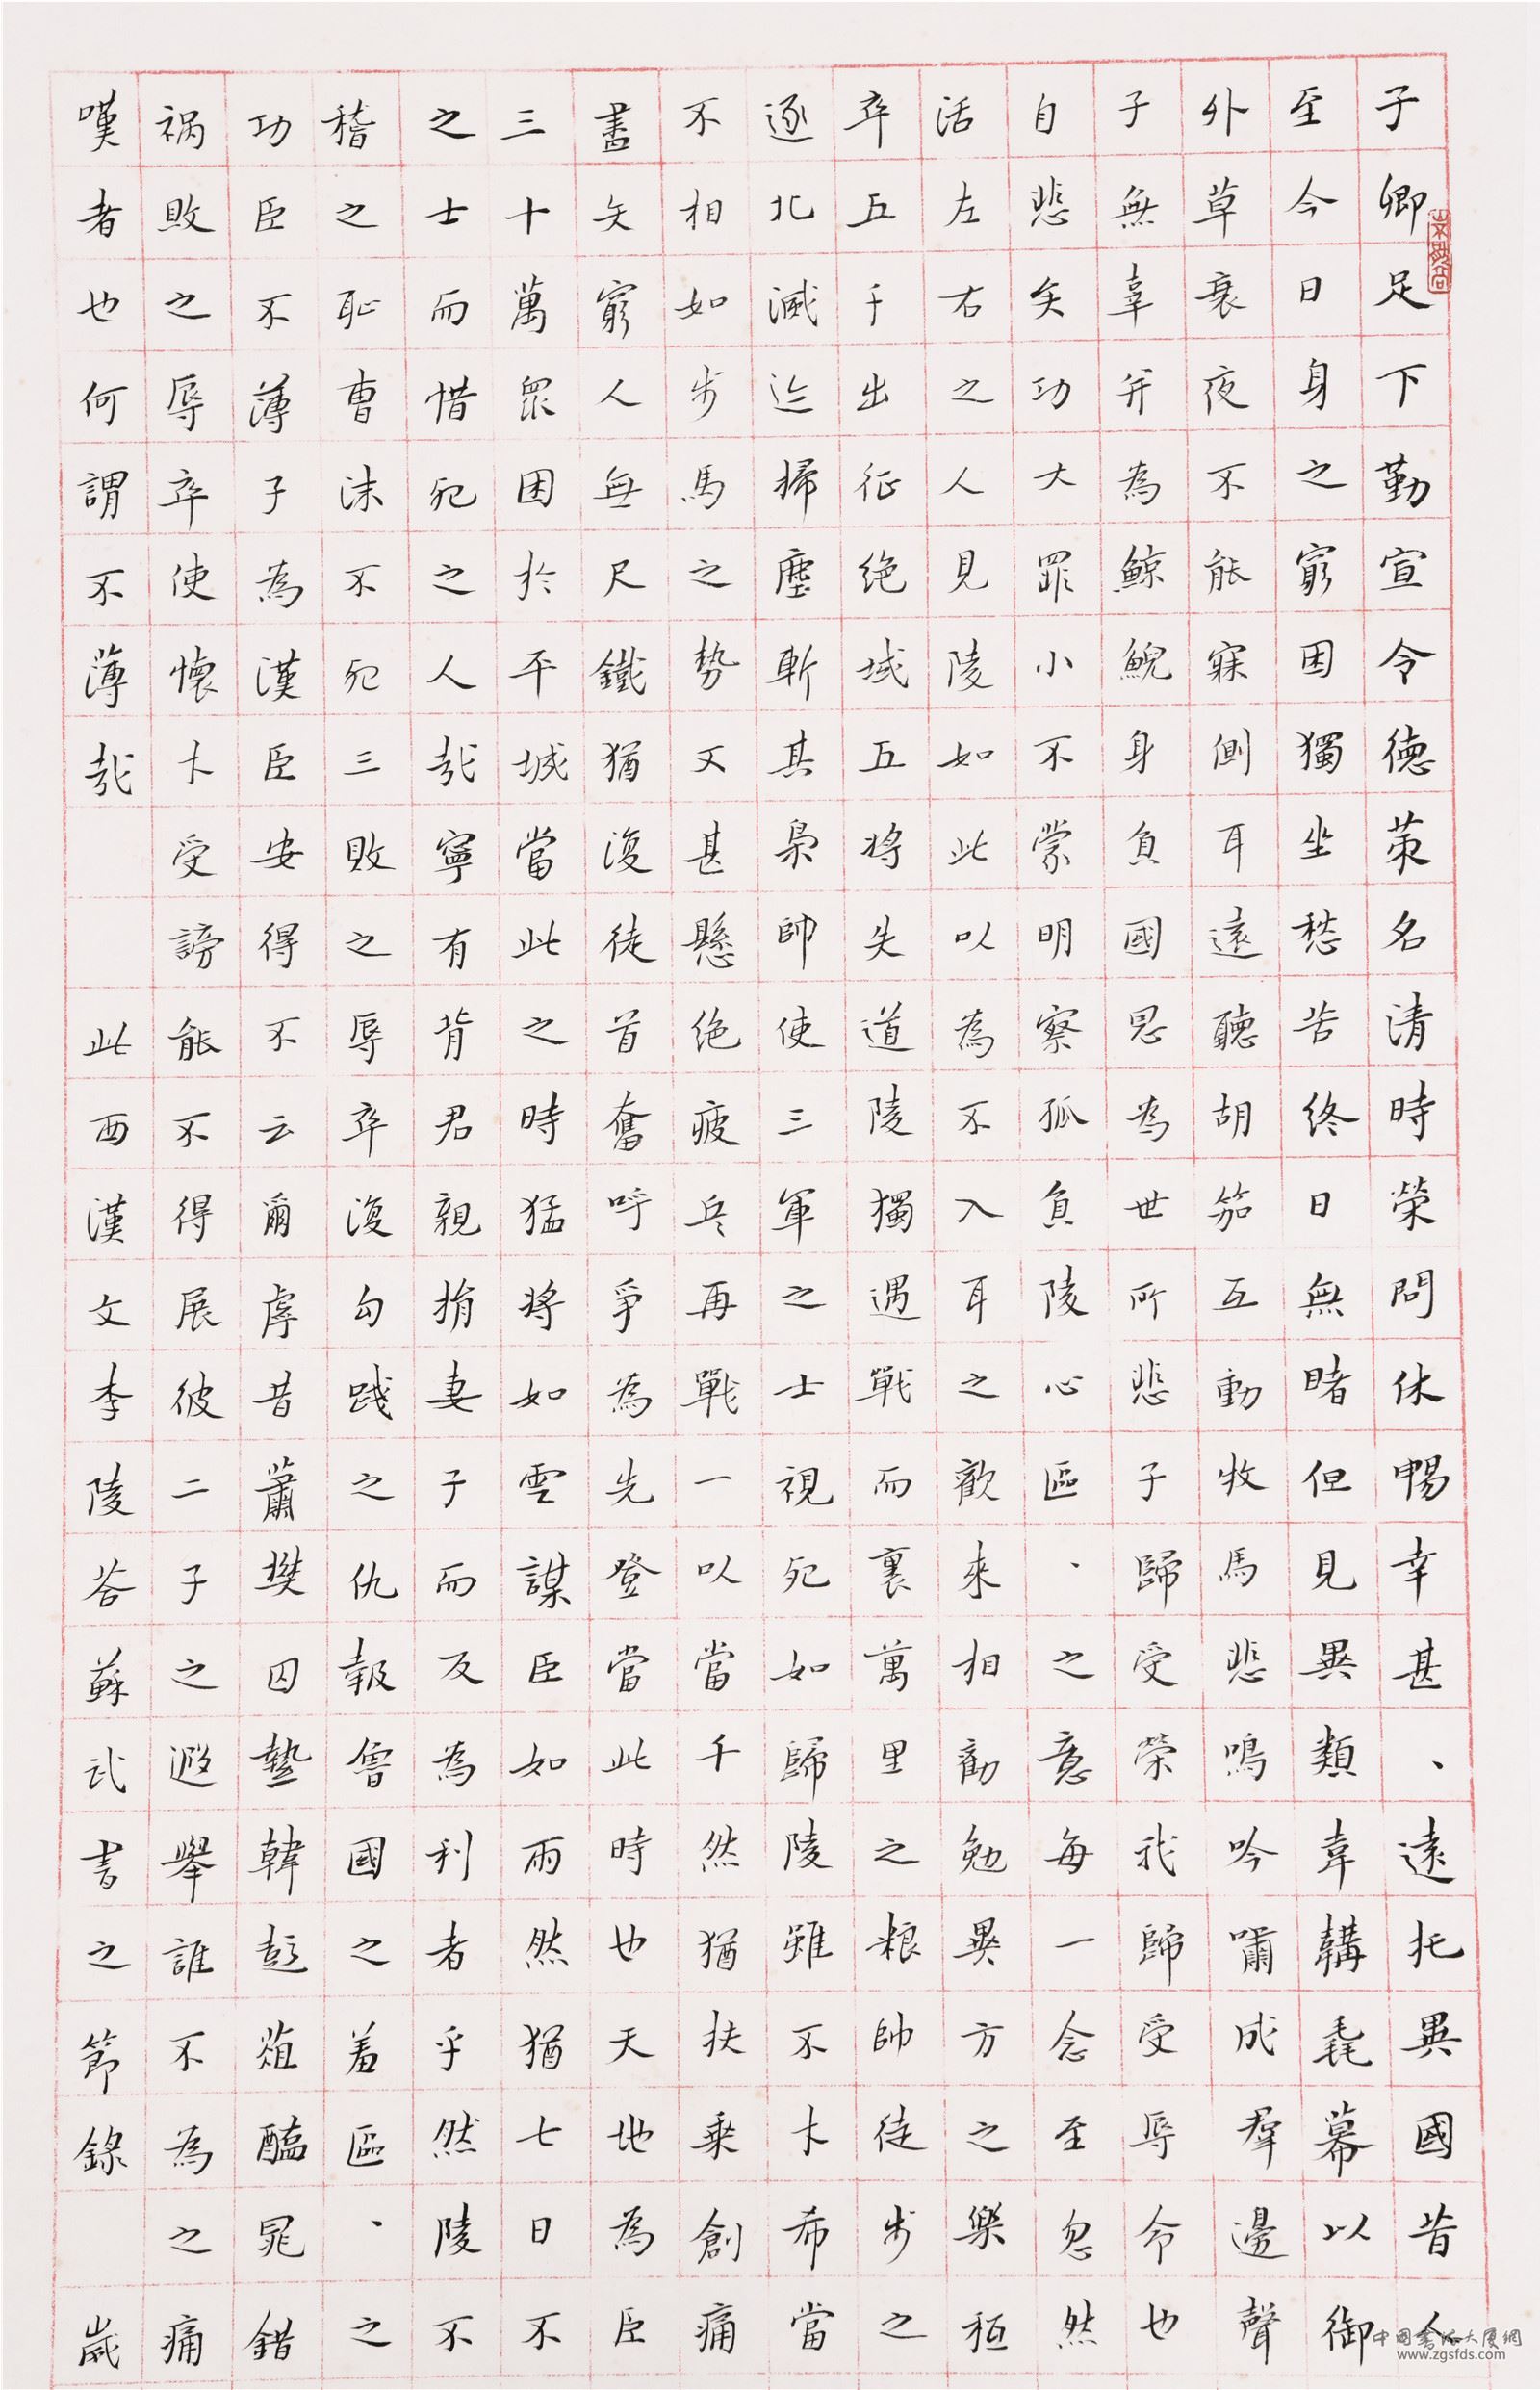 子卿足下勤宣令德策名清時榮問休暢幸甚、遠托異國昔人
至今日身之窮困獨坐愁苦終日無睹但見異類韋韝毳幕以御
外草衰夜不能寐側耳遠聽胡笳互動牧馬悲鳴吟嘯成群邊聲
子無辜并為鯨鯢身負國恩為世所悲子歸受榮我歸受辱命也
自悲矣功大罪小不蒙明察孤負陵心區、之意每一念至忽然
活左右之人見陵如此以為不入耳之歡來相勸勉異方之樂秪
卒五千出征絕域五將失道陵獨遇戰而裹萬里之糧帥徒步之
逐北滅迹掃塵斬其梟帥使三軍之士視死如歸陵雖不才希當
不相如步馬之勢又甚懸絕疲兵再戰一以當千然猶扶乘創痛
盡矢窮人無尺鐵猶復徒首奮呼爭為先登當此時也天地為臣
三十萬眾困於平城當此之時猛將如雲謀臣如雨然猶七日不
之士而惜死之人哉寧有背君親捐妻子而反為利者乎然陵不
稽之恥曹沬不死三敗之辱卒復勾踐之仇報魯國之羞區、之
功臣不薄子為漢臣安得不云爾虖昔蕭樊囚縶韓彭葅醢晁錯
禍敗之辱卒使懷才受謗能不得展彼二子之遐舉誰不為之痛
嘆者也何謂不薄哉 此西漢文李陵答蘇武書之節錄 歲
中国书法大厦網
www.zgsfds.com